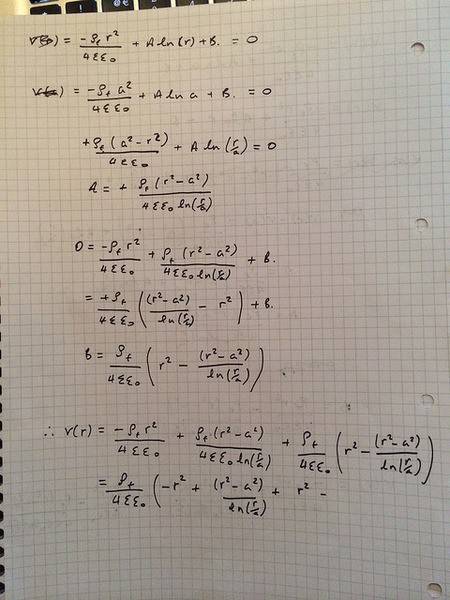 V(r) = -ρ_f r² / 4εε₀ + A ln(r) + B. = 0
V(a) = -ρ_f a² / 4εε₀ + A ln a + B. = 0
+ρ_f (a² - r²) / 4εε₀ + A ln(r/a) = 0
A = + ρ_f (r² - a²) / 4εε₀ ln(r/a)
0 = -ρ_f r² / 4εε₀ + ρ_f (r² - a²) / 4εε₀ ln(r/a) + B.
= +ρ_f / 4εε₀ ( (r² - a²) / ln(r/a) - r² ) + B.
B = ρ_f / 4εε₀ ( r² - (r² - a²) / ln(r/a) )
∴ V(r) = -ρ_f r² / 4εε₀ + ρ_f (r² - a²) / 4εε₀ ln(r/a) + ρ_f / 4εε₀ ( r² - (r² - a²) / ln(r/a) )
= ρ_f / 4εε₀ ( -r² + (r² - a²) / ln(r/a) + r² -